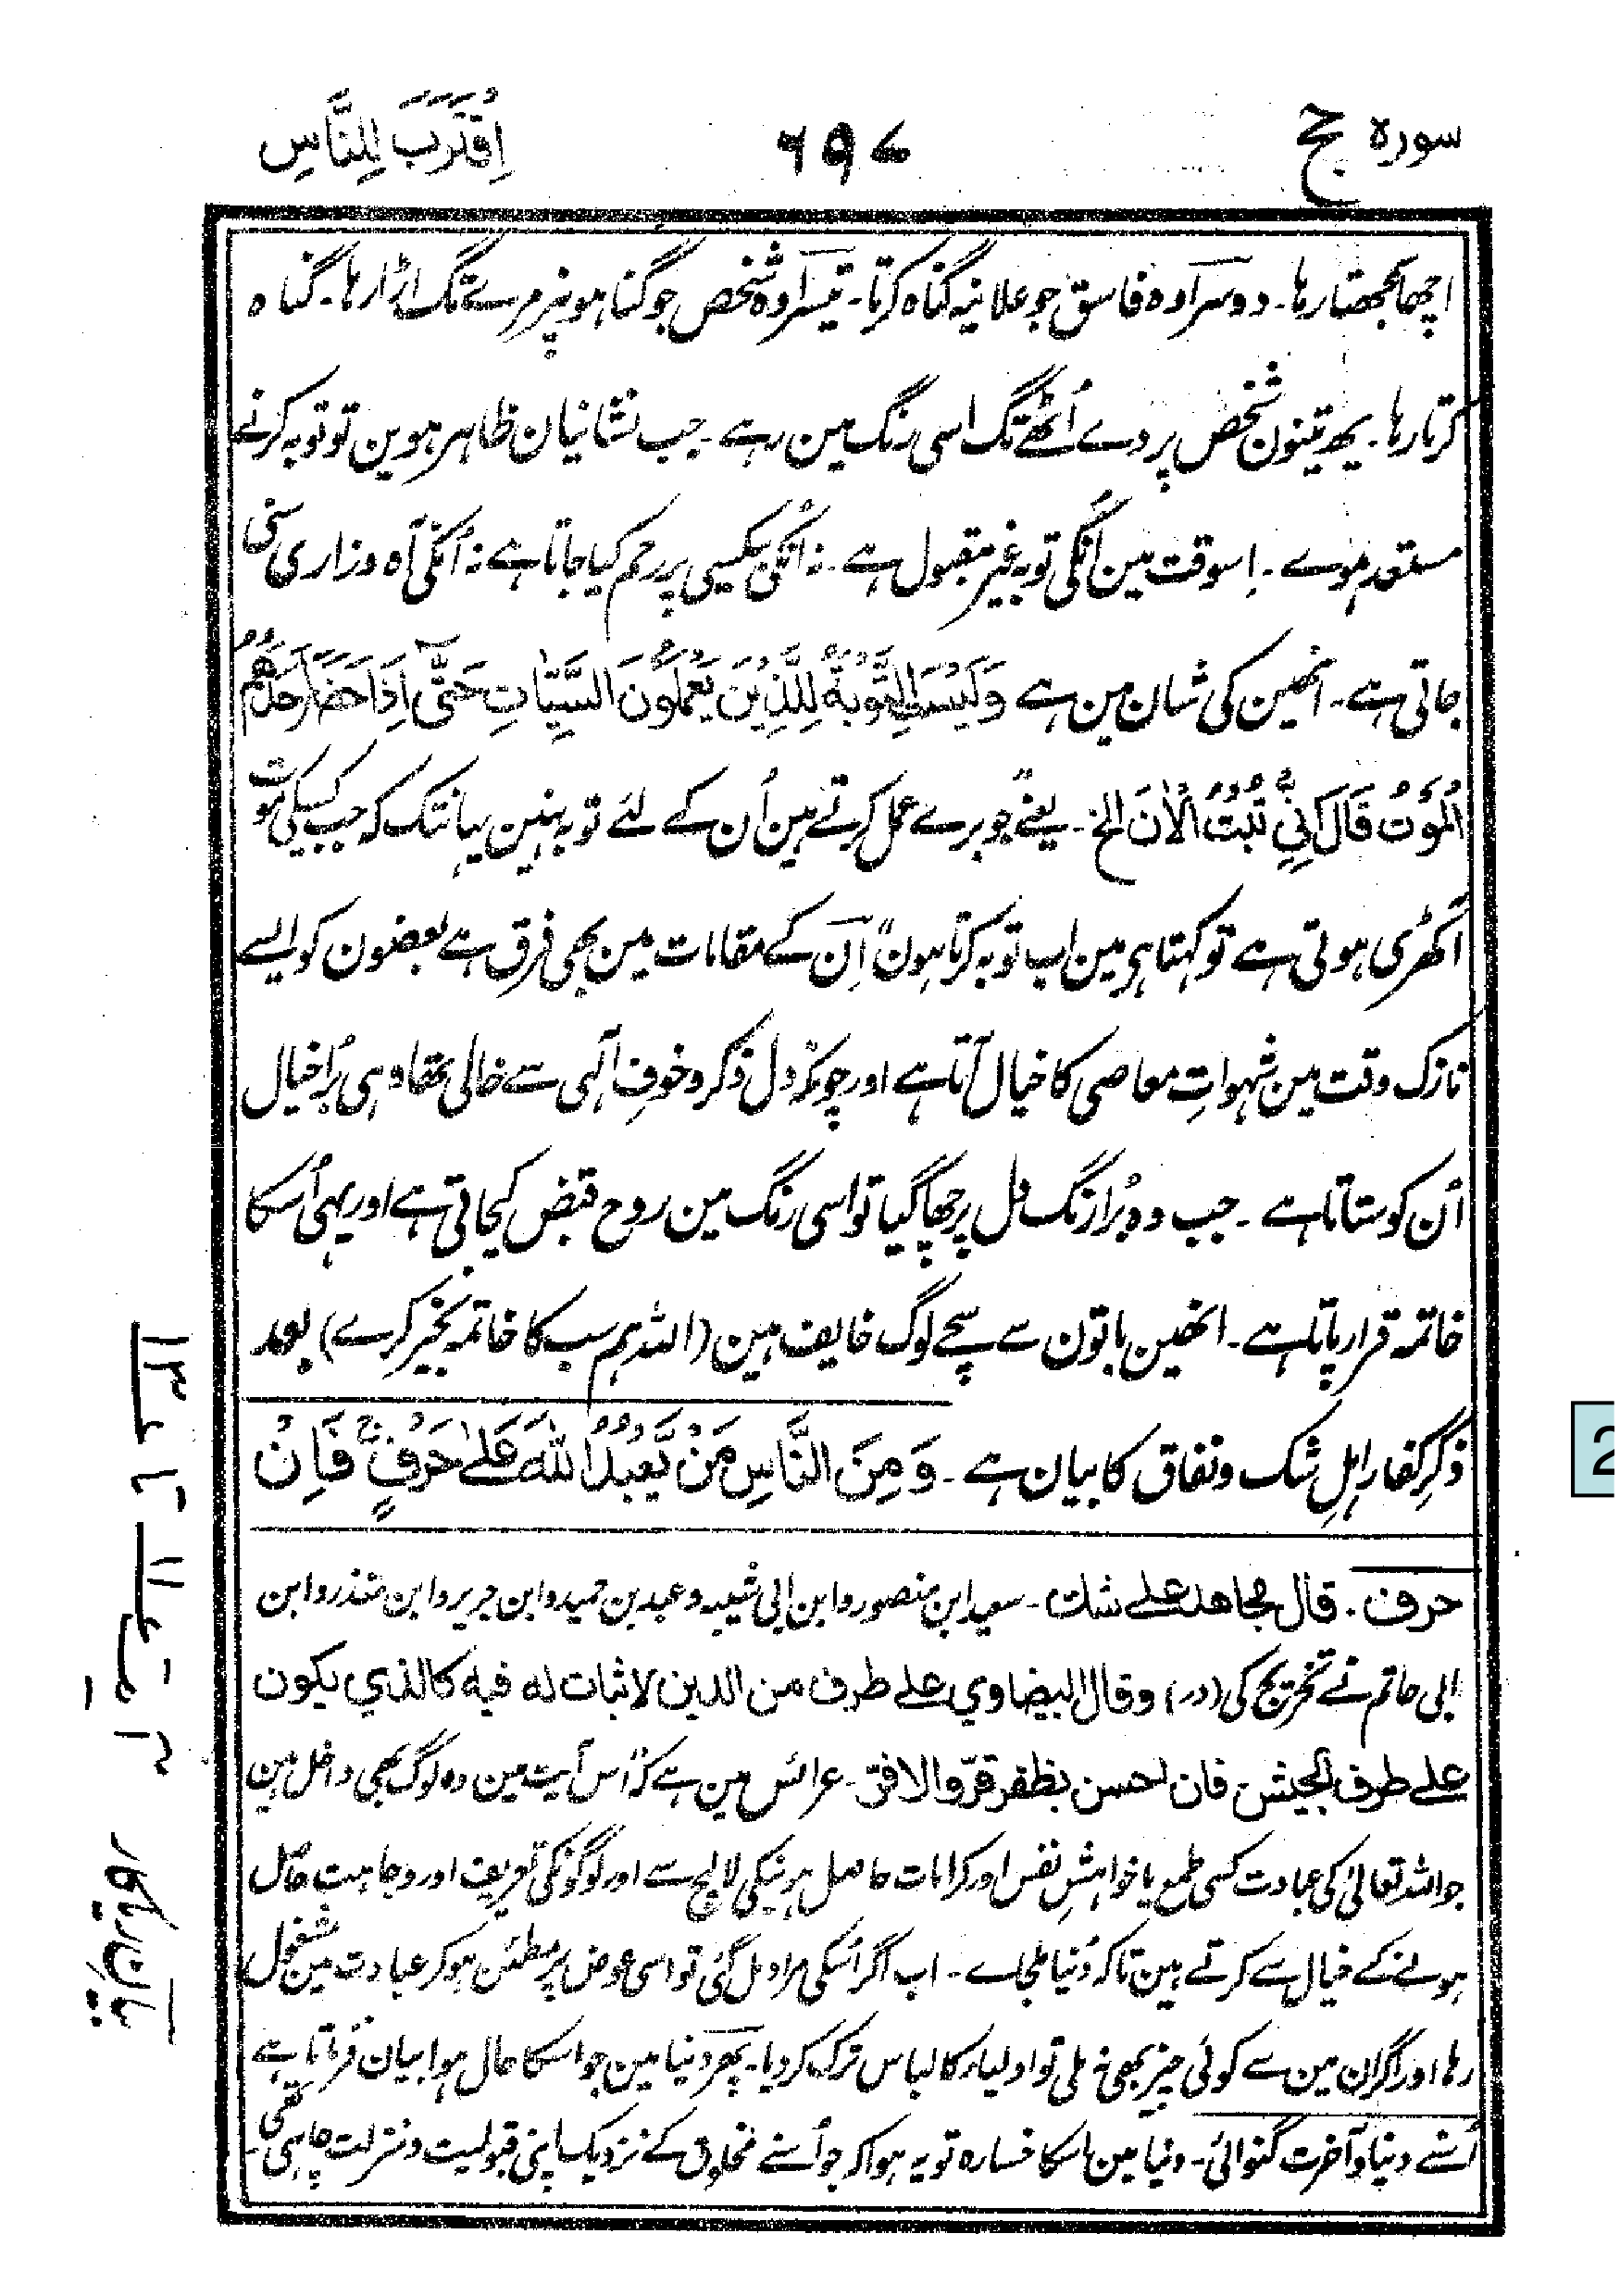 سورہ حج
۶۹۷
اِقْتَرَبَ لِلنَّاسِ
اچھا سمجھتا رہا۔ دوسرا وہ فاسق جو علانیہ گناہ کرتا۔ تیسرا وہ شخص جو گناہونپر مرتے تک اڑا رہا۔ گناہ
کرتا رہا۔ یہ تینون شخص پردے اُٹھے تک اسی رنگ مین رہے۔ جب نشانیان ظاہر ہوین تو توبہ کرنے
مستعد ہوے۔ اِسوقت مین اُنکی توبہ غیر مقبول ہے۔ نہ اُنکی بیکسی پر رحم کیا جاتا ہے نہ اُنکی آہ وزاری سنی
جاتی ہے۔ انھین کی شان مین ہے وَلَيْسَتِ التَّوْبَةُ لِلَّذِيْنَ يَعْمَلُوْنَ السَّيِّاٰتِ حَتّٰى اِذَا حَضَرَ اَحَدَهُمُ
الْمَوْتُ قَالَ اِنِّيْ تُبْتُ الْاٰنَ الخ۔ یعنے جو برے عمل کرتے ہین اُن کے لئے توبہ نہین یہانتک کہ جب کسیکی موت
آکھڑی ہوتی ہے تو کہتا ہے مین اب توبہ کرتا ہون اِن کے مقامات مین بھی فرق ہے بعضون کو ایسے
نازک وقت مین شہواتِ معاصی کا خیال آتا ہے اور چونکہ دل ذکر وخوفِ الٰہی سے خالی تھا وہی بُرا خیال
اُن کو ستاتا ہے۔ جب وہ بُرا رنگ دل پر چھا گیا تو اسی رنگ مین روح قبض کیجاتی ہے اور یہی اُسکا
خاتمہ قرار پاتا ہے۔ انھین باتون سے سچے لوگ خایف ہین (اللہ ہم سب کا خاتمہ بخیر کرے) بعد
ذکرِ کفار اہلِ شک ونفاق کا بیان ہے۔ وَمِنَ النَّاسِ مَنْ يَّعْبُدُ اللّٰهَ عَلٰى حَرْفٍ ۚ فَاِنْ
حرف۔ قال مجاهد علے شك۔ سعید ابن منصور وابن ابی شیبہ وعبد بن حمید وابن جریر وابن منذر وابن
ابی حاتم نے تخریج کی (در) وقال البيضاوي علے طرف من الدين لاثبات له فيه كالذي يكون
علے طرف الجيش فان احسن بظفر قرّ والا فرّ۔ عرائس مین ہے کہ اس آیت مین وہ لوگ بھی داخل ہین
جو اللہ تعالیٰ کی عبادت کسی طمع یا خواہشِ نفس اور کرامات حاصل ہونیکی لالچ سے اور لوگونکی تعریف اور وجاہت حاصل
ہونے کے خیال سے کرتے ہین تاکہ دُنیا ملجاے۔ اب اگر اُسکی مراد مل گئی تو اسی عوض پر مطمئن ہوکر عبادت مین مشغول
رہا اور اگر ان مین سے کوئی چیز بھی نہ ملی تو اولیاء کا لباس ترک کردیا۔ پھر دنیا مین جو اسکا حال ہوا بیان فرماتا ہے
اُسنے دنیا وآخرت گنوائی۔ دنیا مین اسکا خسارہ تو یہ ہوا کہ جو اُسنے مخلوق کے نزدیک اپنی قبولیت ومنزلت چاہی تھی۔
آیت ۱۱ تا ۱۳
2